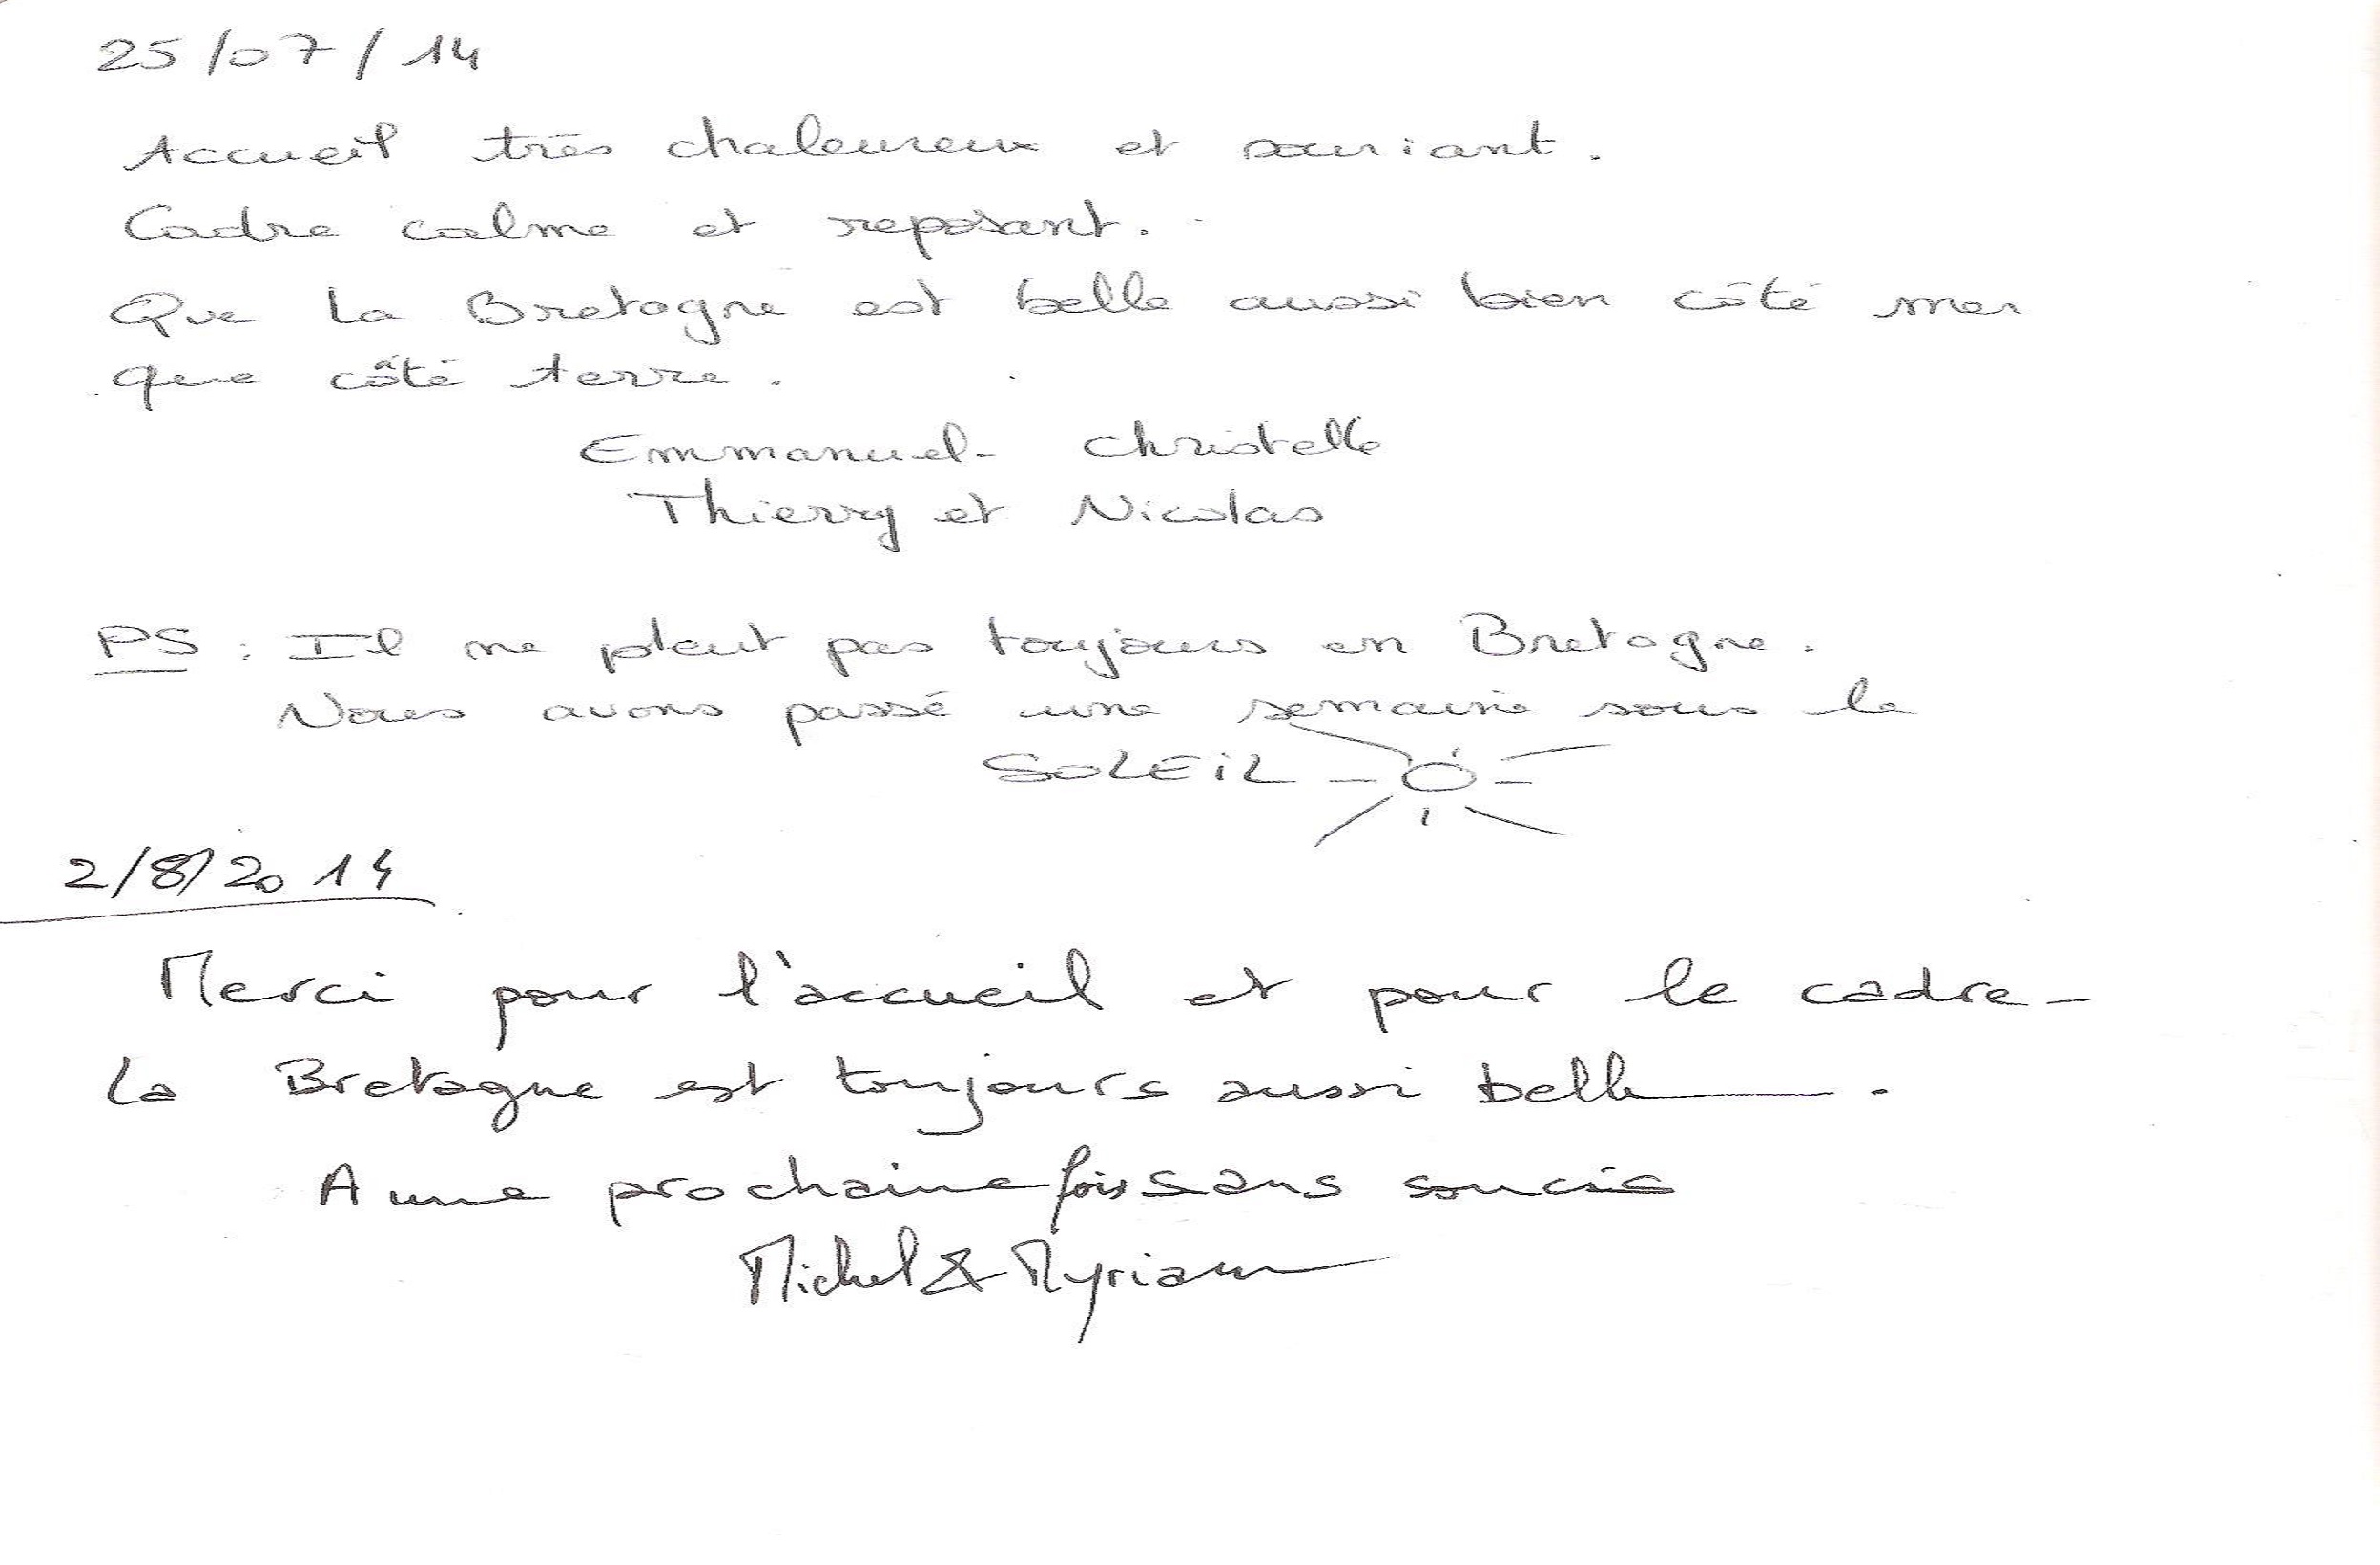 25/07/14
Accueil très chaleureux et souriant.
Cadre calme et reposant.
Que la Bretagne est belle aussi bien côté mer
que côté terre.
Emmanuel - Christelle
Thierry et Nicolas
PS : Il ne pleut pas toujours en Bretagne.
Nous avons passé une semaine sous le
SOLEIL
2/8/2014
Merci pour l'accueil et pour le cadre -
La Bretagne est toujours aussi belle.
A une prochaine fois sans soucis
Michel & Myriam